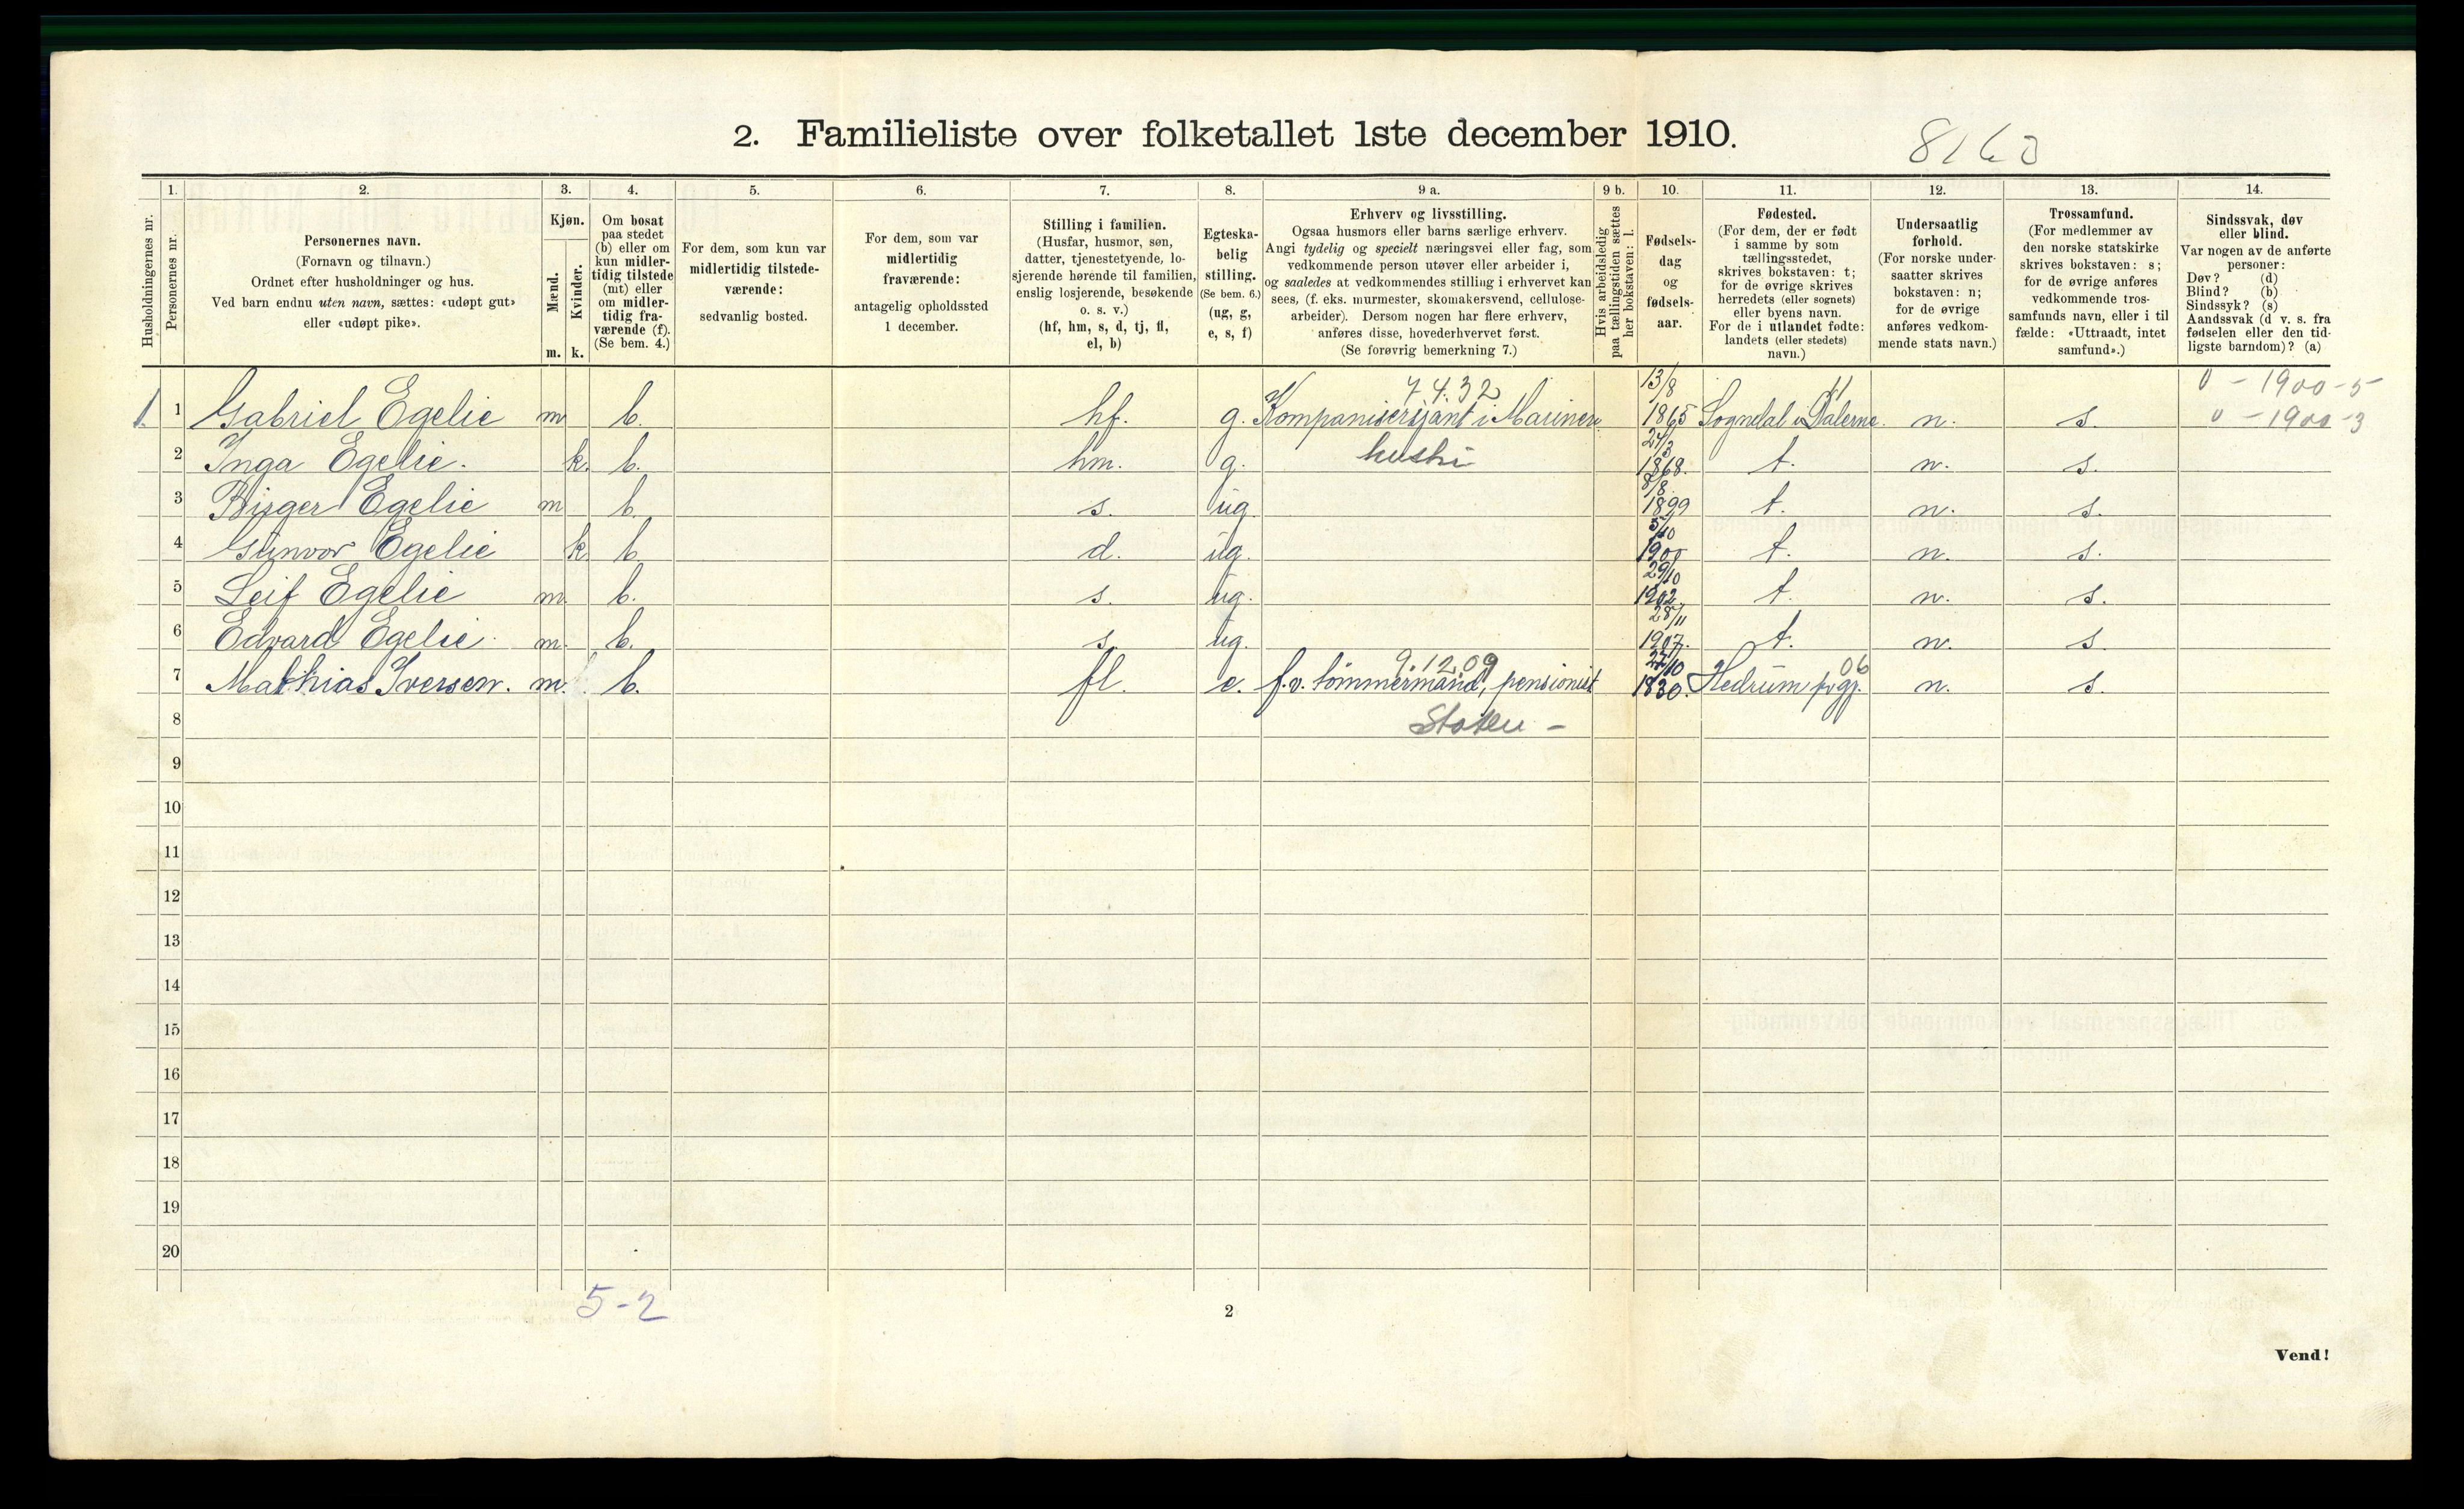 2. Familieliste over folketallet 1ste december 1910.
8160
1. 2. 3. 4. 5. 6. 7. 8. 9 a. 9 b. 10. 11. 12. 13. 14.
Husholdningernes nr.
Personernes nr.
Personernes navn.
(Fornavn og tilnavn.)
Ordnet efter husholdninger og hus.
Ved barn endnu uten navn, sættes: «udøpt gut»
eller «udøpt pike».
Kjøn.
Mænd.
Kvinder.
m. k.
Om bosat
paa stedet
(b) eller om
kun midler-
tidig tilstede
(mt) eller
om midler-
tidig fra-
værende (f).
(Se bem. 4.)
For dem, som kun var
midlertidig tilstede-
værende:
sedvanlig bosted.
For dem, som var
midlertidig
fraværende:
antagelig opholdssted
1 december.
Stilling i familien.
(Husfar, husmor, søn,
datter, tjenestetyende, lo-
sjerende hørende til familien,
enslig losjerende, besøkende
o. s. v.)
(hf, hm, s, d, tj, fl,
el, b)
Egteska-
belig
stilling.
(Se bem. 6.)
(ug, g,
e, s, f)
Erhverv og livsstilling.
Ogsaa husmors eller barns særlige erhverv.
Angi tydelig og specielt næringsvei eller fag, som
vedkommende person utøver eller arbeider i,
og saaledes at vedkommendes stilling i erhvervet kan
sees, (f. eks. murmester, skomakersvend, cellulose-
arbeider). Dersom nogen har flere erhverv,
anføres disse, hovederhvervet først.
(Se forøvrig bemerkning 7.)
Hvis arbeidsledig
paa tællingstiden sættes
her bokstaven: l.
Fødsels-
dag
og
fødsels-
aar.
Fødested.
(For dem, der er født
i samme by som
tællingsstedet,
skrives bokstaven: t;
for de øvrige skrives
herredets (eller sognets)
eller byens navn.
For de i utlandet fødte:
landets (eller stedets)
navn.)
Undersaatlig
forhold.
(For norske under-
saatter skrives
bokstaven: n;
for de øvrige
anføres vedkom-
mende stats navn.)
Trossamfund.
(For medlemmer av
den norske statskirke
skrives bokstaven: s;
for de øvrige anføres
vedkommende tros-
samfunds navn, eller i til
fælde: «Uttraadt, intet
samfund».)
Sindssvak, døv
eller blind.
Var nogen av de anførte
personer:
Døv? (d)
Blind? (b)
Sindssyk? (s)
Aandssvak (d v. s. fra
fødselen eller den tid-
ligste barndom)? (a)
7.4.32 13/8 11 0 - 1900 - 5
1. 1 Gabriel Egelie m b. hf. g. Kompanisersjant i Marinen 1865 Sogndal i Dalerne. n. s. 0 - 1900 - 3
2 Inga Egelie. k. b. hm. g. 24/3 1868. t. n. s.
3 Birger Egelie m b. s. ug. 8/8 1899 t. n. s.
4 Gunvor Egelie k b. d. ug. 5/10 1900 t. n. s.
5 Leif Egelie m. b. s. ug. 29/10 1902. t. n. s.
6 Edvard Egelie. m. b. s. ug. 28/11 1907. t. n. s.
9.12.09 06
7 Mathias Iversen. m. b. fl. e. f.v. tømmermand, pensionist 22/10 1830. Hedrum prgj. n. s.
8 Staten -
9
10
11
12
13
14
15
16
17
18
19
20
5-2
2
Vend!